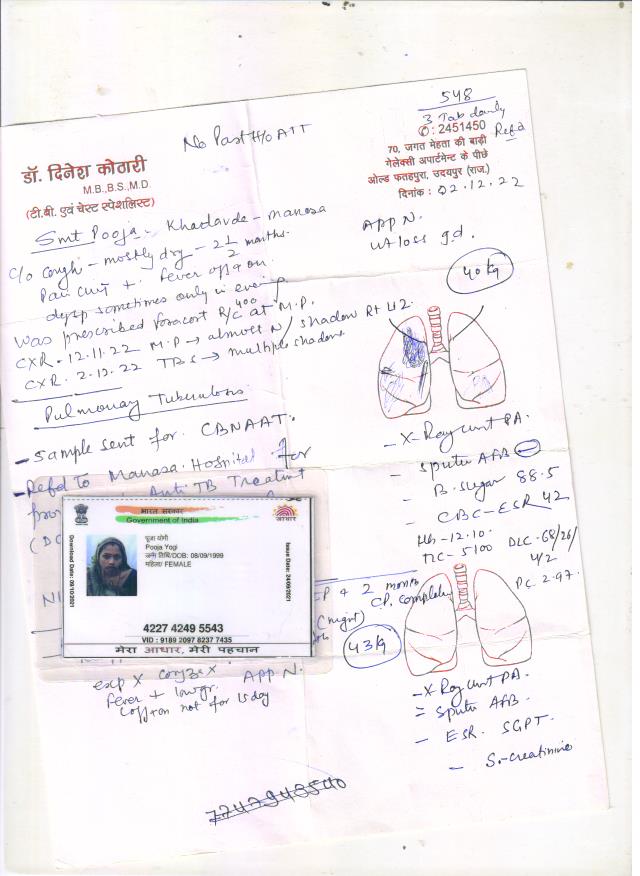 548
3 Tab daily
No Past H/o ATT
✆: 2451450
Refd
70, जगत मेहता की बाड़ी
गेलेक्सी अपार्टमेन्ट के पीछे
ओल्ड फतहपुरा, उदयपुर (राज.)
दिनांक : 02.12.22
डॉ. दिनेश कोठारी
M.B.,B.S.,M.D.
(टी.बी. एवं चेस्ट स्पेशलिस्ट)
Smt Pooja - Khadavda - Manasa
C/o Cough - mostly dry - 2 1/2 months.
Pain Chest + Fever off & on
dysp sometimes only in evening
Was prescribed foracort R/C 400 at M.P.
CXR. 12.11.22 M.P → almost N
CXR. 2.12.22 TBS → multiple shadows
shadow Rt UZ
App N.
wt loss gd.
40 kg
Pulmonary Tuberculosis
- Sample sent for CBNAAT.
- Refd to Manasa Hospital for
Anti TB Treatment
- X-Ray chest PA.
- Sputum AFB -
- B. Sugar 88.5
- CBC - ESR 42
Hb - 12.10
TLC - 5100 DLC - 68/26/
4/2
PC. 2.97
भारत सरकार
Government of India
आधार
Download Date: 09/10/2021
पूजा योगी
Pooja Yogi
जन्म तिथि/DOB: 08/09/1999
महिला/ FEMALE
Issue Date: 24/09/2021
4227 4249 5543
VID : 9189 2097 8237 7435
मेरा आधार, मेरी पहचान
IP & 2 month
CP. Complete
43 kg
App N.
Fever + low gr.
Coff + on not for 15 day
- X-Ray chest PA.
= Sputum AFB.
- ESR. SGPT.
- S. creatinine
7747943540